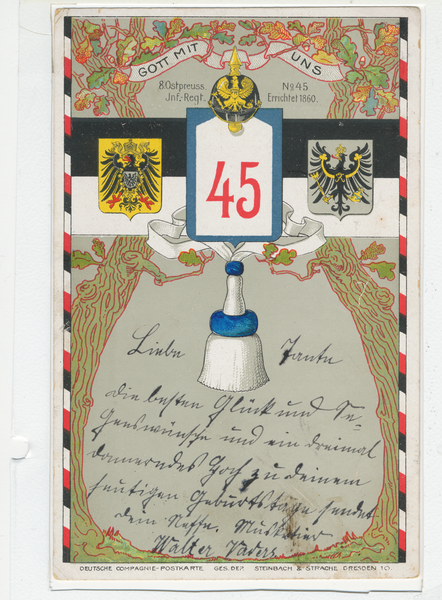 GOTT MIT UNS
8. Ostpreuss. No 45
Jnf.-Regt. Errichtet 1860.
45
Liebe Tante
die besten Glück und Se-
genswünsche und ein dreimal
donnerndes Hoch zu deinem
heutigen Geburtstage sendet
dein Neffe. Musketier
Walter
DEUTSCHE COMPAGNIE-POSTKARTE GES. DEP. STEINBACH & STRACHE DRESDEN 10.